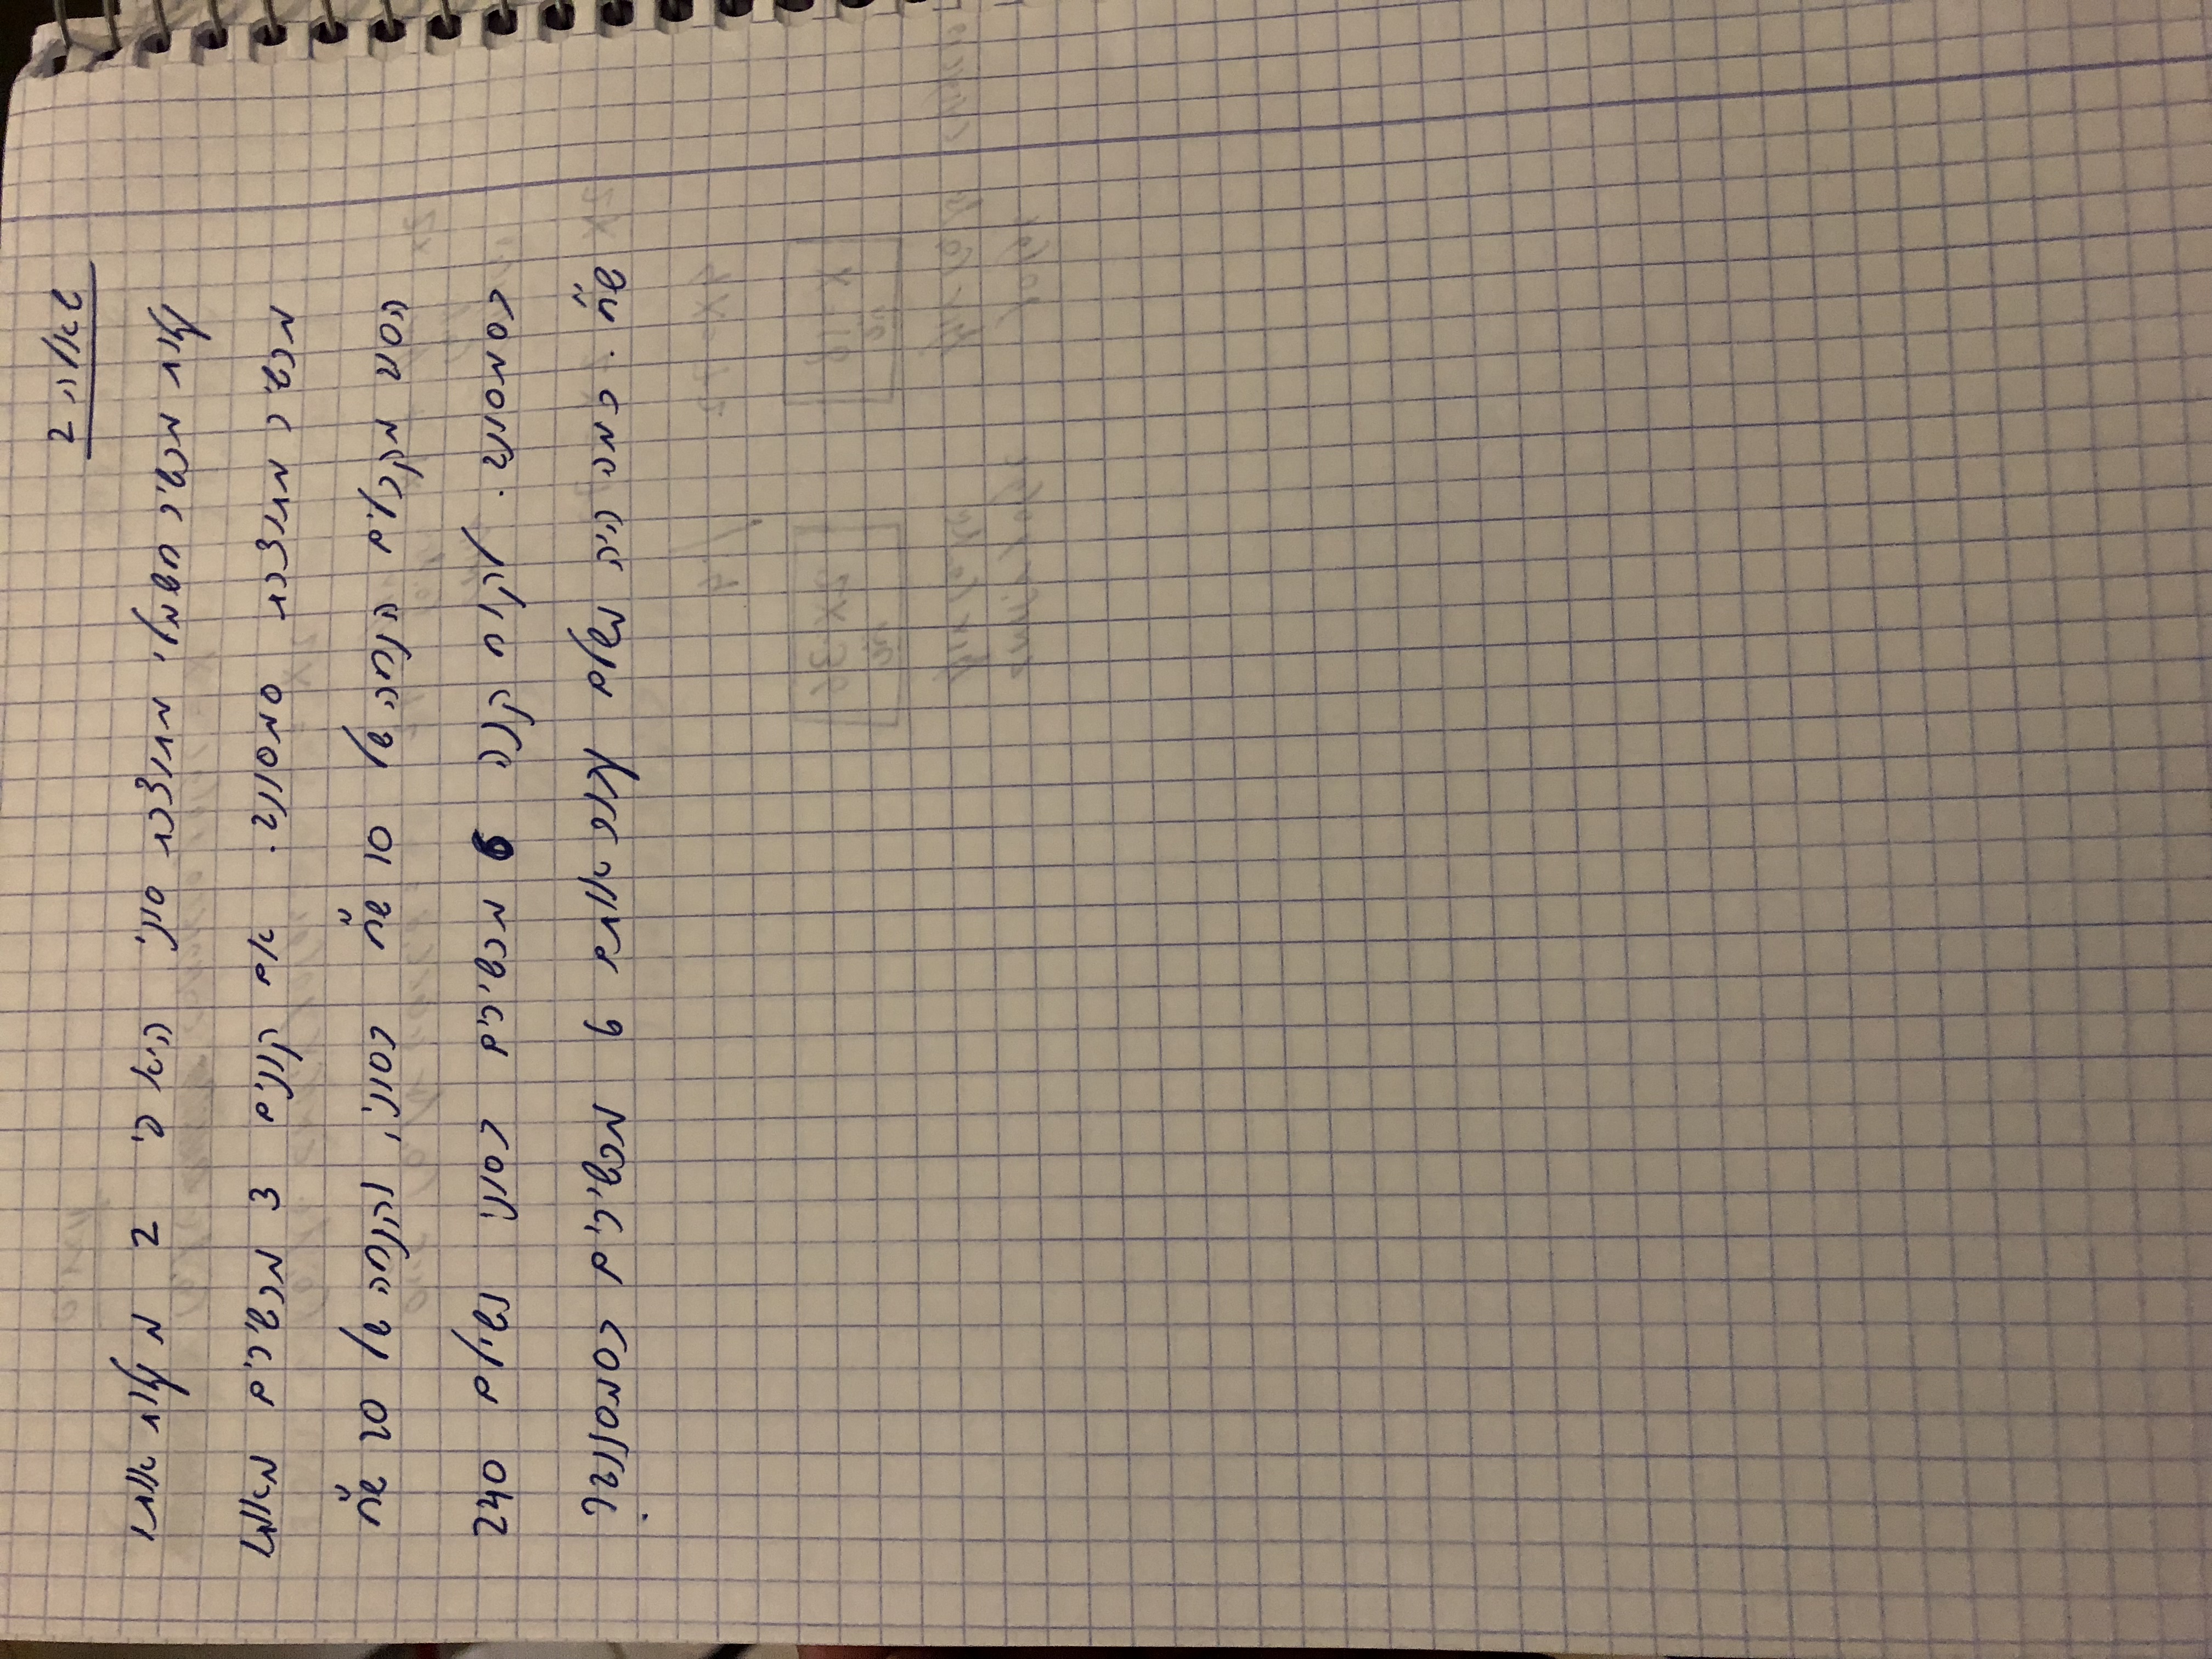 שאלה 2
עלות מכשיר חשמלי מתוצרת סוני היא פי 2 מעלות אותו
מכשיר מתוצרת סמסונג. אם קונים 3 מכשירים מאותו
הסוג מקבלים הנחה של 10 ש"ח בסוני, והנחה של 20 ש"ח
בסמסונג. לקוח קנה 6 מכשירים בסוני ושילם 240
ש"ח. כמה היה משלם עבור אותם 6 מכשירים בסמסונג?
4x=72 /:4
x=18 2x=36
ש"ח ש"ח